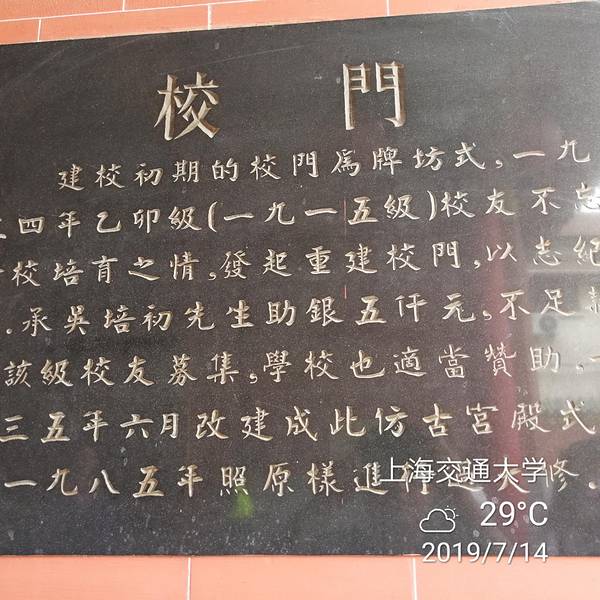 校門
建校初期的校門爲牌坊式,一九
四年乙卯級(一九一五級)校友不忘
校培育之情,發起重建校門,以志紀
.承吳培初先生助銀五仟元,不足
該級校友募集,學校也適當贊助,一
三五年六月改建成此仿古宮殿式
一九八五年照原樣進行大修.
上海交通大学
29°C
2019/7/14